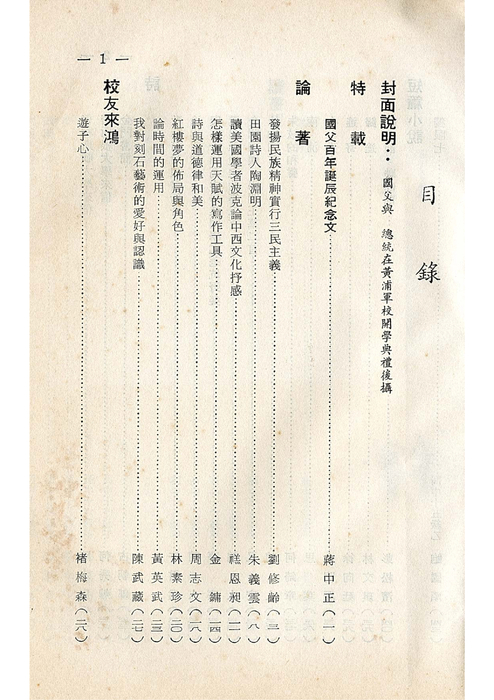 目錄
封面說明：國父與　總統在黃浦軍校開學典禮後攝
特載
國父百年誕辰紀念文 蔣中正（一）
論著
發揚民族精神實行三民主義 劉修齡（三）
田園詩人陶淵明 朱義雲（八）
讀美國學者波克論中西文化抒感 嵇恩昶（一一）
怎樣運用天賦的寫作工具 金鏞（一四）
詩與道德律和美 周志文（一八）
紅樓夢的佈局與角色 林素珍（二〇）
論時間的運用 黃英武（二三）
我對刻石藝術的愛好與認識 陳武藏（二七）
校友來鴻
遊子心 褚梅森（二八）
— 1 —